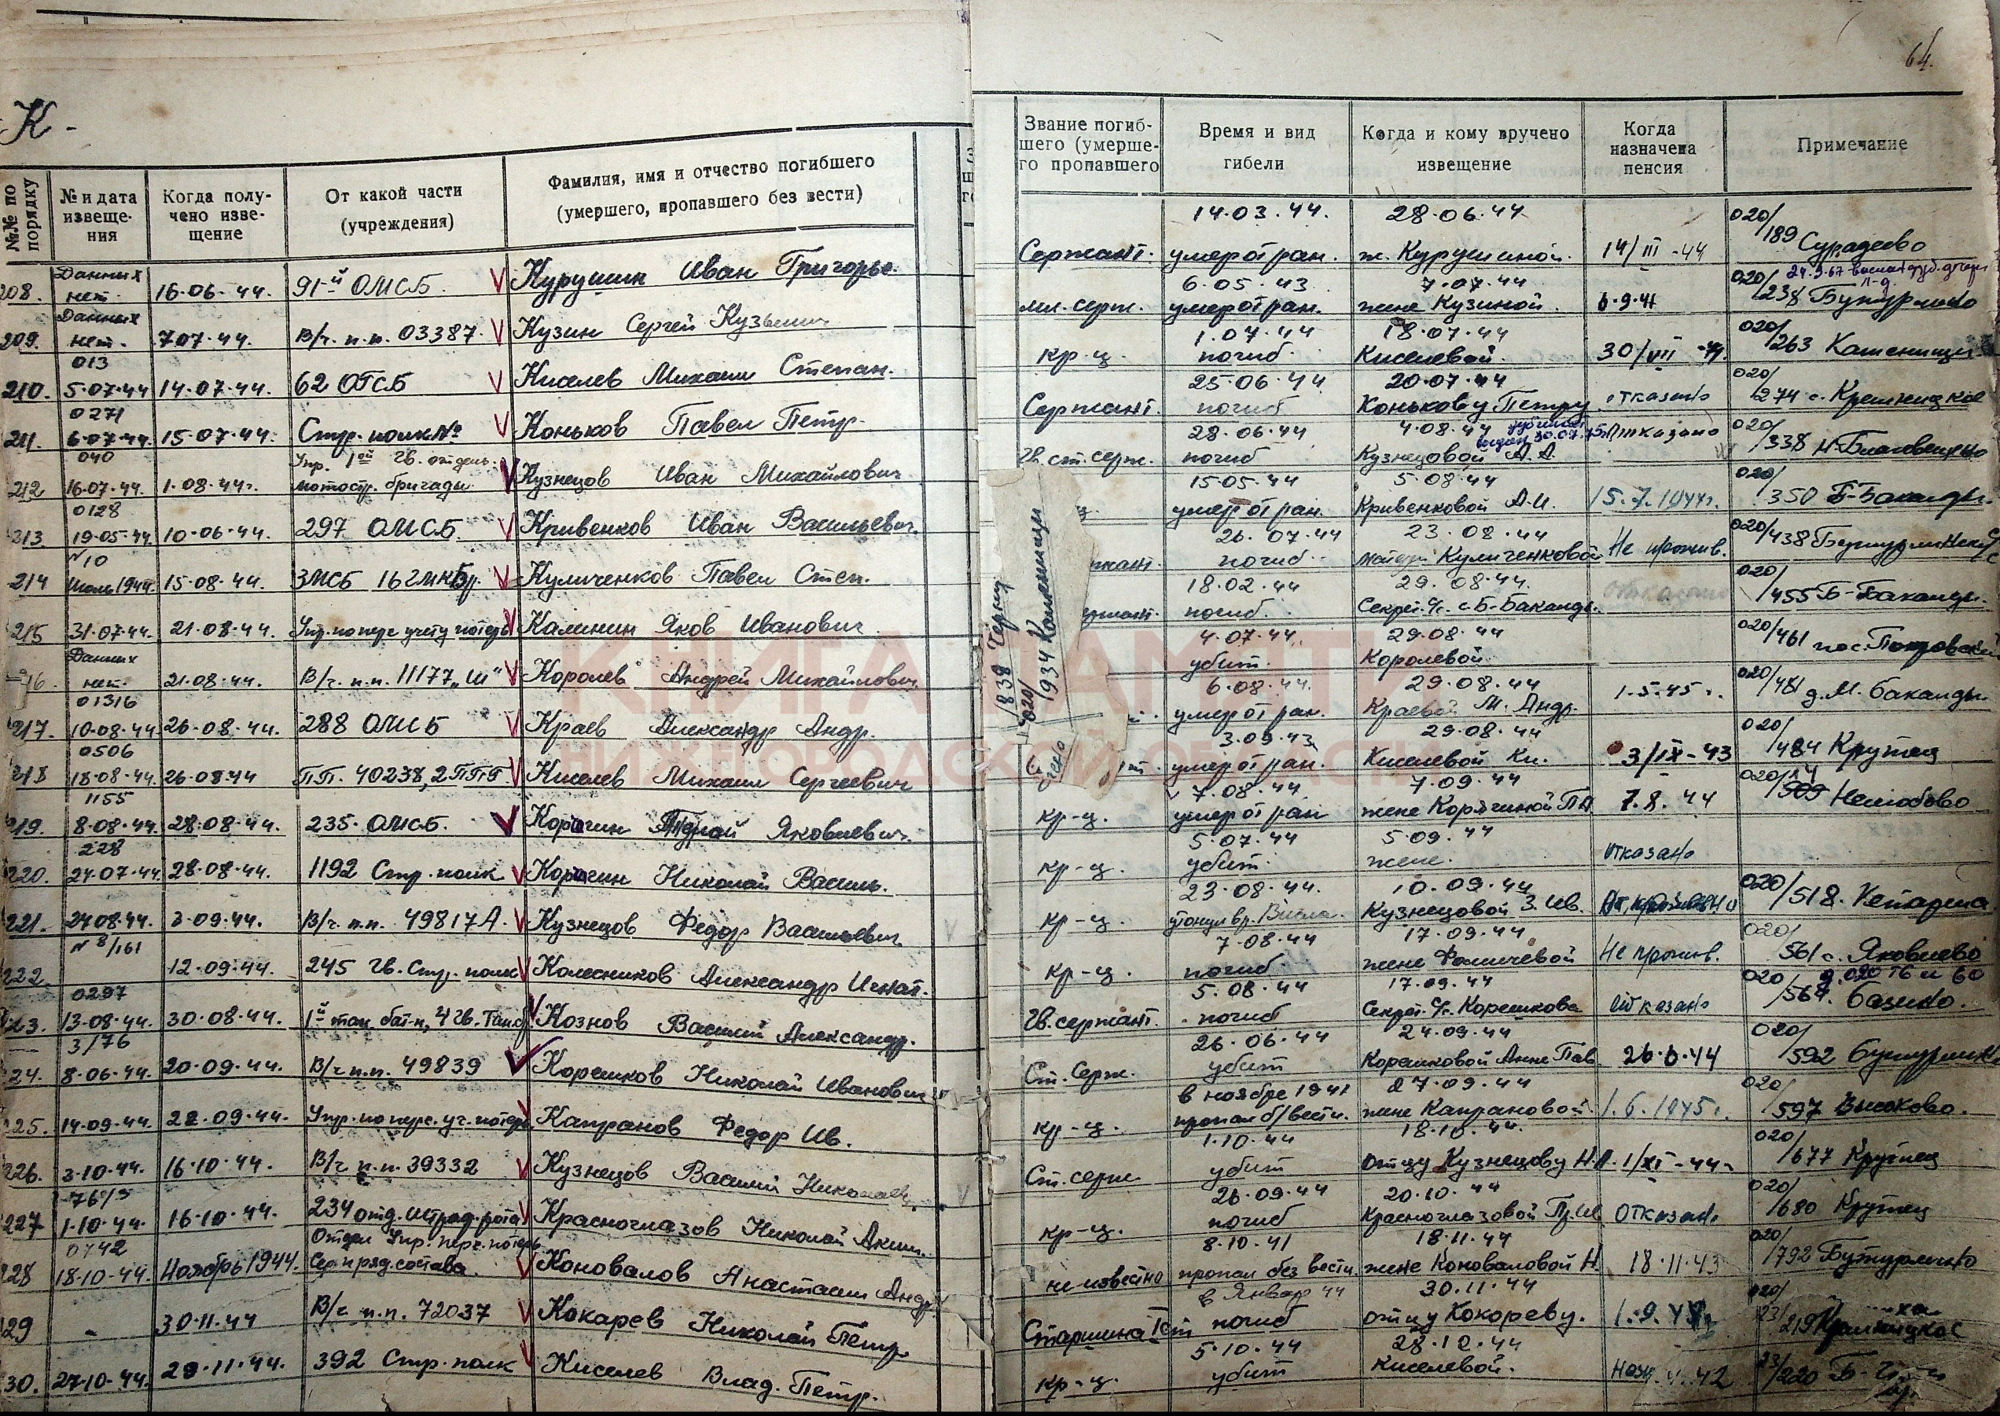 64.
К -
№№ по порядку
№ и дата извеще-ния
Когда полу-чено изве-щение
От какой части (учреждения)
Фамилия, имя и отчество погибшего (умершего, пропавшего без вести)
Звание погиб-шего (умерше-го пропавшего
Время и вид гибели
Когда и кому вручено извещение
Когда назначена пенсия
Примечание
208. Данных нет. 16-06-44. 91-й ОМСБ Курушин Иван Григорье. Сержант. 14.03.44. умер от ран. 28.06.44 ж. Курушиной. 14/III-44 020/189 Сурадеево
209. Данных нет. 7.07.44. В/ч. п.п. 03387. Кузин Сергей Кузьмич мл. серж. 6.05.43 умер от ран. 7.07.44 жене Кузиной. 6.9.41 020/238 Бутурлино
210. 013 5.07.44 14.07.44. 62 ОГСБ Киселев Михаил Степан. кр-ц. 1.07.44 погиб. 18.07.44 Киселевой. 020/263 Каменищи
211. 0271 6.07.44. 15.07.44. Стр. полк № Коньков Павел Петр. Сержант. 25.06.44 погиб 20.07.44 Конькову Петру отказано 020/274 с.
212 040 16.07.44. 1.08.44г. Упр. 1ой Гв. отдель. мотостр. бригады Кузнецов Иван Михайлович Гв. ст. серж. 28.06.44 погиб 4.08.44 Кузнецовой А.А. Отказано 020/338
213. 0128 19.05.44. 10.06.44. 297 ОМСБ Кривенков Иван Васильевич. 15.05.44 умер от ран. 5.08.44 Кривенковой А.И. 15.7.1944г. 020/350 Б-Баканды.
214 №10 Июль 1944. 15.08.44. 3МСБ 16 Куличенков Павел Степ. 26.07.44 погиб. 23.08.44 Куличенковой Не прожив. 020/438
215 31.07.44. 21.08.44. Упр. по перс. учету потерь Калинин Яков Иванович 18.02.44 погиб. 29.08.44. Секрет. с/с. с Б-Баканды. 020/455 Б-Баканды.
216. Данных нет. 21.08.44. В/ч. п.п. 11177 „Ш" Королев Андрей Михайлович. 4.07.44. убит. 29.08.44 Королевой. 020/461 пос. Покровский
217. 01316 10.08.44 26.08.44. 288 ОМСБ Краев Александр Андр. 6.08.44. умер от ран. 29.08.44 Краевой М. Андр. 1.5.45г. 020/481 д. М. Баканды.
218 0506 18.08.44. 26.08.44 ПП. 40238, 2ППГ Киселев Михаил Сергеевич 3.09.43 умер от ран. 29.08.44 Киселевой Кл. 3/IX-43 020/484 Крутец
219. 1155 8.08.44. 28.08.44. 235 ОМСБ. Яковлевич. кр-ц. 7.08.44. умер от ран 7.09.44 7.8.44 020/ Нелюбово
220. 228 24.07.44. 28.08.44. 1192 Стр. полк Николай Василь. кр-ц. 5.07.44 убит. 5.09.44 жене. отказано
221. 24.08.44. 3.09.44. В/ч. п.п. 49817А. Кузнецов Федор Васильевич кр-ц. 23.08.44. утонул в р. Висла. 10.09.44 Кузнецовой З. Ив. 020/518.
222. № 8/161 12.09.44. 245 Гв. Стр. полк Колесников Александр Игнат. кр-ц. 7.08.44 погиб 17.09.44 жене Фомичевой Не прожив. 020/561 с. Яковлево
223. 0297 13.08.44. 30.08.44. 1й тан. бат-н, 4 Гв. Кознов Василий Александр. Гв. сержант. 5.08.44 погиб 17.09.44 Секрет. с/с. Корешкова Отказано 020/564. Базино.
224. 3/76 8.06.44. 20.09.44. В/ч п.п. 49839 Корешков Николай Иванович Ст. Серж. 26.06.44 убит 24.09.44 Корешковой Анне Пав. 26.6.44 020/592
225. 14.09.44. 22.09.44. Упр. по перс. уч. потерь Капранов Федор Ив. кр-ц. в ноябре 1941 пропал б/вести. 27.09.44 жене Капрановой. 1.6.1945г. 020/597 Высоково.
226. 3.10.44. 16.10.44. В/ч п.п. 39332 Кузнецов Василий Николаев. Ст. серж 1.10.44 убит 18.10.44. отцу Кузнецову Н.П. 1/XI-44 020/677 Крутец
227 1.10.44. 16.10.44. 234 отд. штраф. рота Красноглазов Николай Аким. кр-ц. 26.09.44 погиб 20.10.44 Красноглазовой отказано 020/680 Крутец
228 0742 18.10.44. Ноябрь 1944. Отдел Упр. перс. потерь Серж и ряд. состава. Коновалов Анастасий Андр. не известно 8.10.41 пропал без вести. 18.11.44 жене Коноваловой Н. 18.11.43 020/792 Бутурлино
229 - 30.11.44 В/ч п.п. 72037 Кокарев Николай Петр. Старшина в Январ 44 погиб 30.11.44 отцу Кокореву. 020/ 23/219
230. 27.10.44. 29.11.44. 392 Стр. полк Киселев Влад. Петр. кр-ц. 5.10.44 убит 28.12.44 Киселевой. 23/220
020/ 1934 Каменищи
КНИГА ПАМЯТИ
НИЖЕГОРОДСКОЙ ОБЛАСТИ